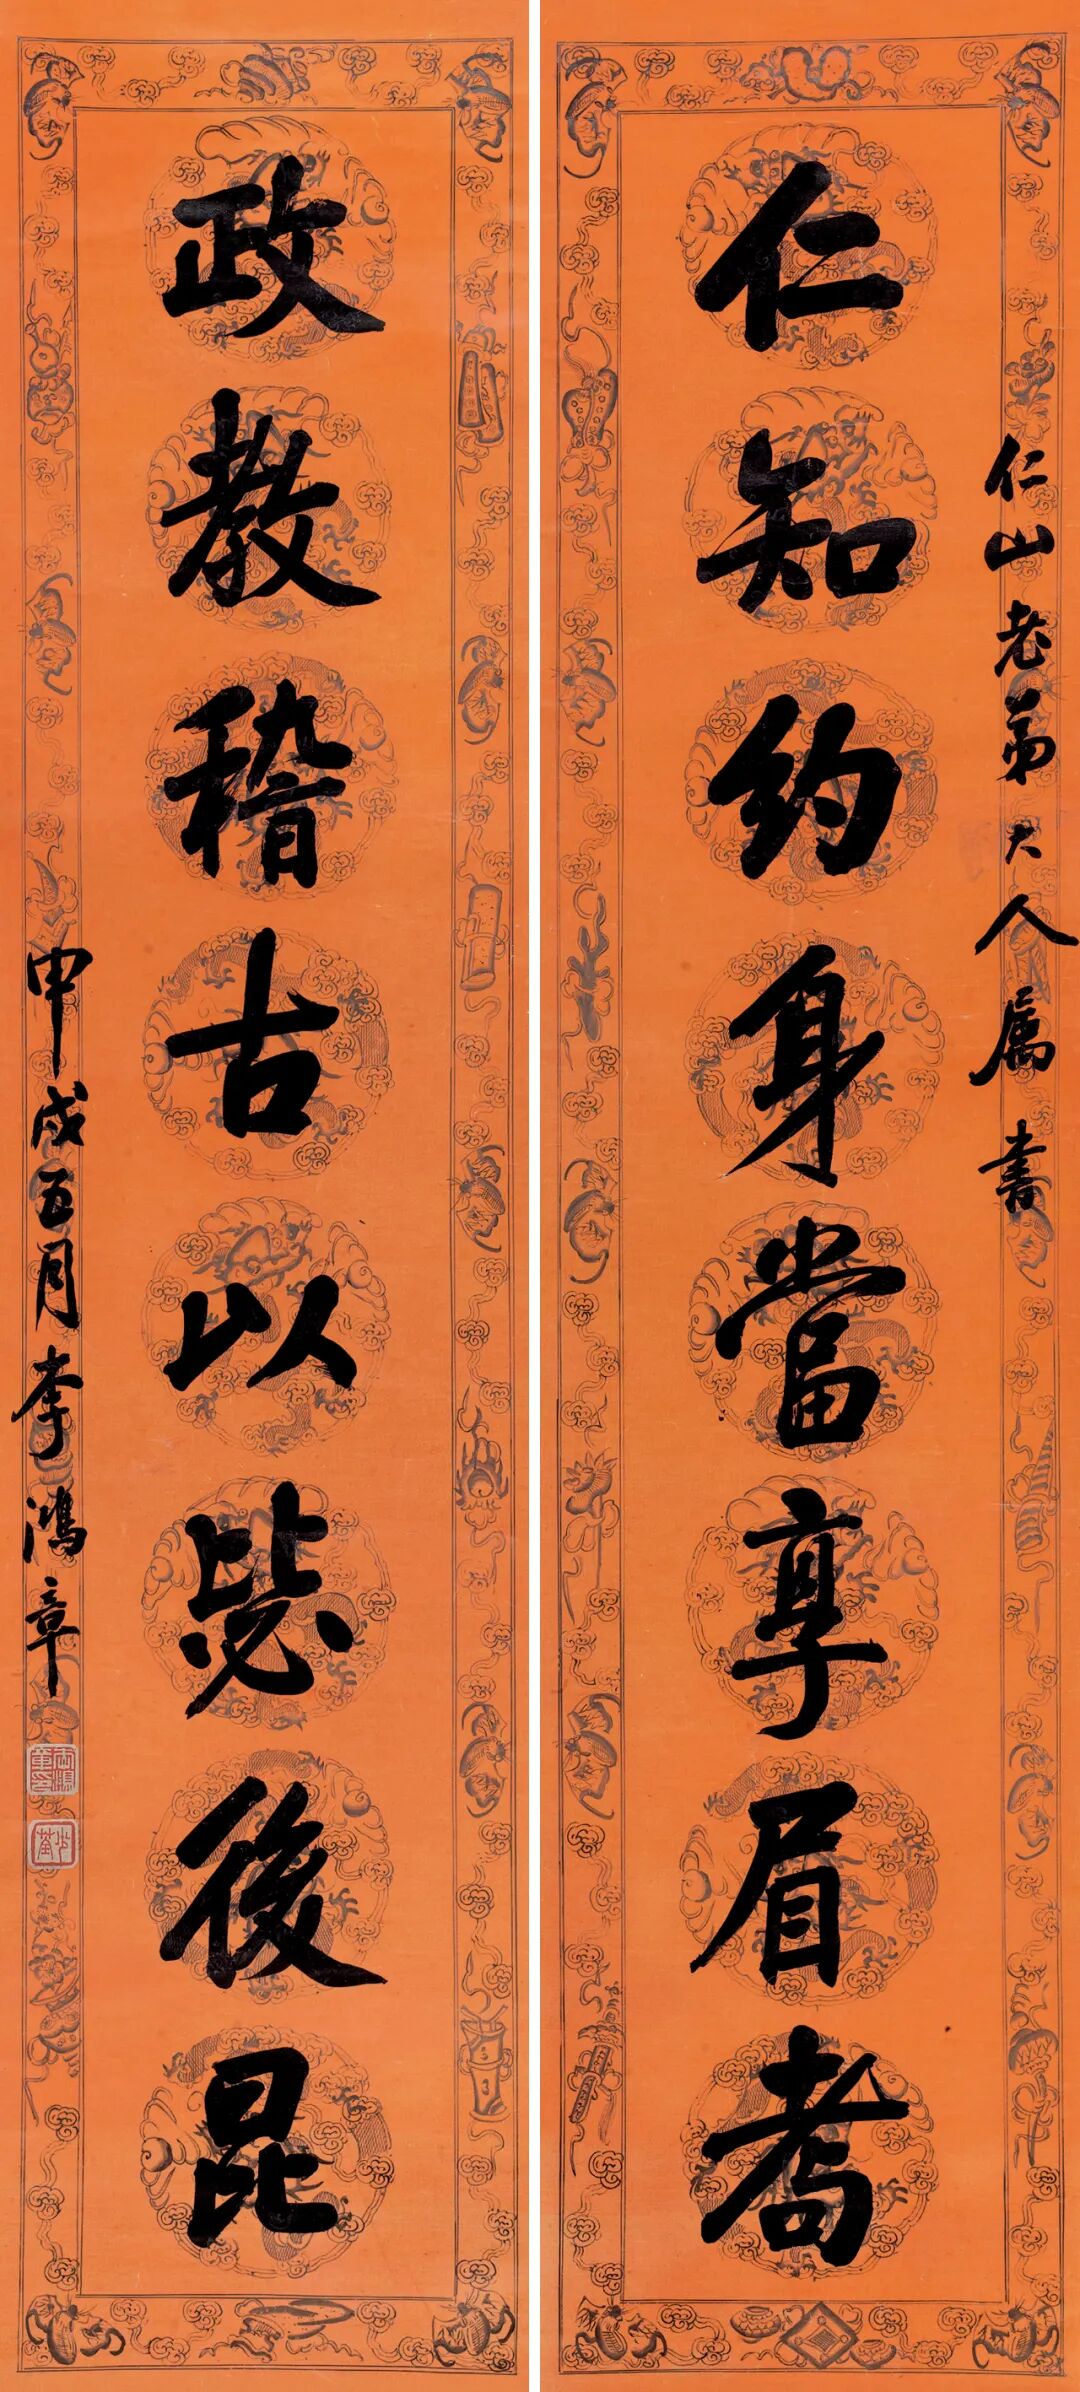 仁山老弟大人屬書
仁知約身當享眉耇
政教稽古以毖後昆
甲戌五月李鴻章
少荃